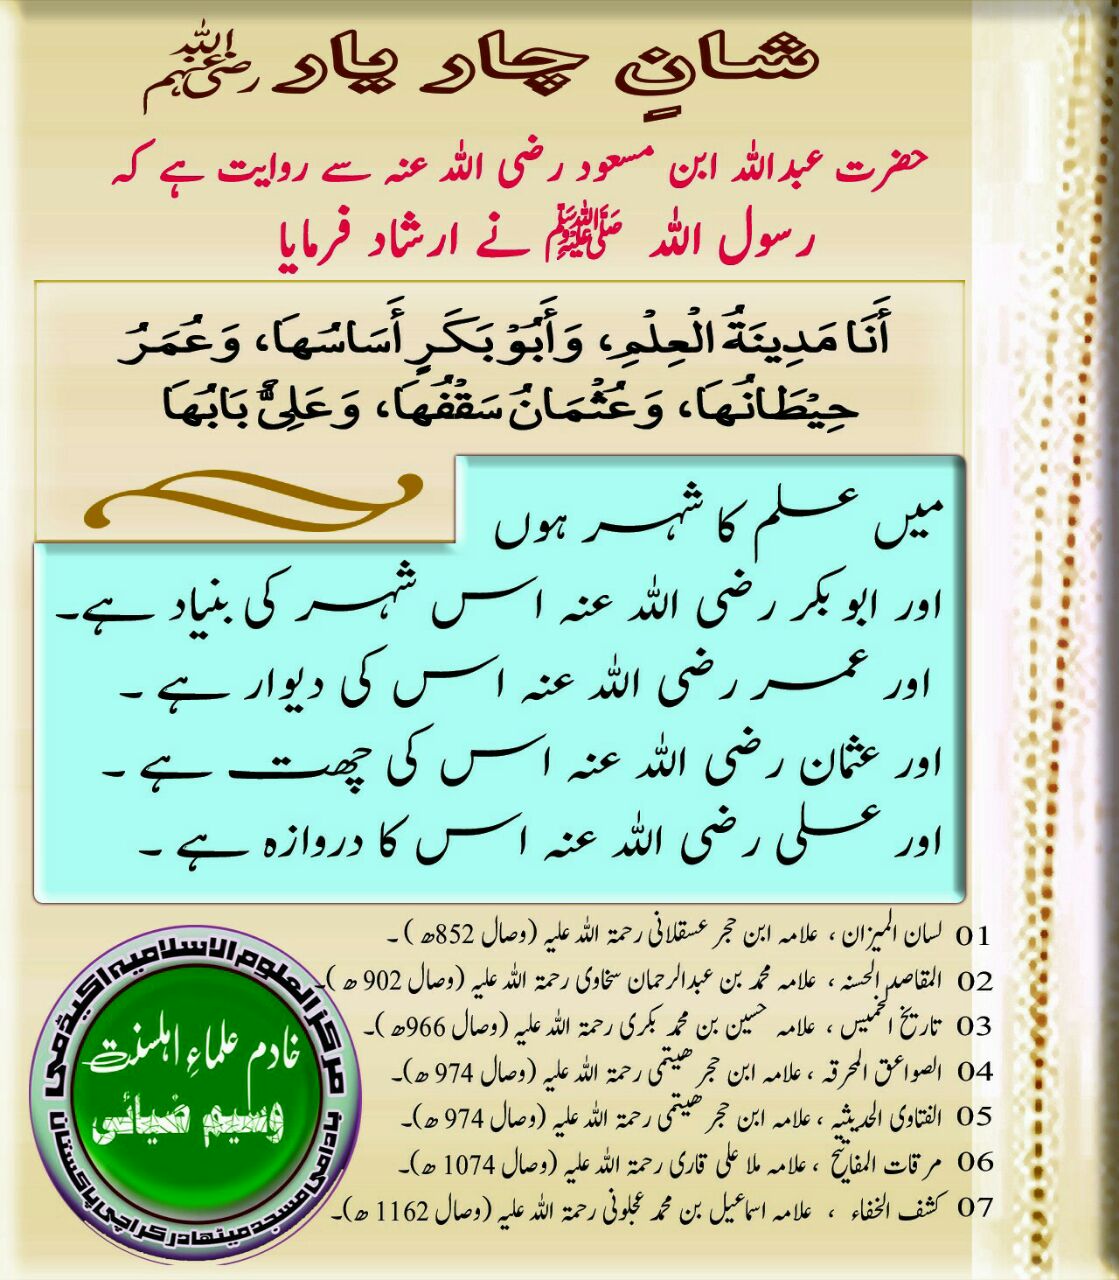 شانِ چار یار رضی اللہ عنہم
حضرت عبداللہ ابن مسعود رضی اللہ عنہ سے روایت ہے کہ
رسول اللہ ﷺ نے ارشاد فرمایا
أَنَا مَدِينَةُ الْعِلْمِ، وَأَبُوْ بَكَرٍ أَسَاسُهَا، وَعُمَرُ
حِيْطَانُهَا، وَعُثْمَانُ سَقْفُهَا، وَعَلِىٌّ بَابُهَا
میں علم کا شہر ہوں
اور ابو بکر رضی اللہ عنہ اس شہر کی بنیاد ہے۔
اور عمر رضی اللہ عنہ اس کی دیوار ہے ۔
اور عثمان رضی اللہ عنہ اس کی چھت ہے ۔
اور علی رضی اللہ عنہ اس کا دروازہ ہے ۔
01 لسان المیزان ، علامہ ابن حجر عسقلانی رحمۃ اللہ علیہ (وصال 852ھ ) ۔
02 المقاصد الحسنہ ، علامہ محمد بن عبدالرحمان سخاوی رحمۃ اللہ علیہ (وصال 902 ھ )۔
03 تاریخ الخمیس ، علامہ حسین بن محمد بکری رحمۃ اللہ علیہ (وصال 966ھ )۔
04 الصواعق المحرقہ ، علامہ ابن حجر ھیتمی رحمۃ اللہ علیہ (وصال 974 ھ)۔
05 الفتاوی الحدیثیہ ، علامہ ابن حجر ھیتمی رحمۃ اللہ علیہ (وصال 974 ھ)۔
06 مرقات المفاتیح ، علامہ ملا علی قاری رحمۃ اللہ علیہ (وصال 1074 ھ)۔
07 کشف الخفاء ، علامہ اسماعیل بن محمد عجلونی رحمۃ اللہ علیہ (وصال 1162 ھ)۔
مرکز العلوم الاسلامیہ اکیڈمی
خادم علماءِ اہلسنت
وسیم ضیائی
بادامی مسجد میٹھادر کراچی پاکستان